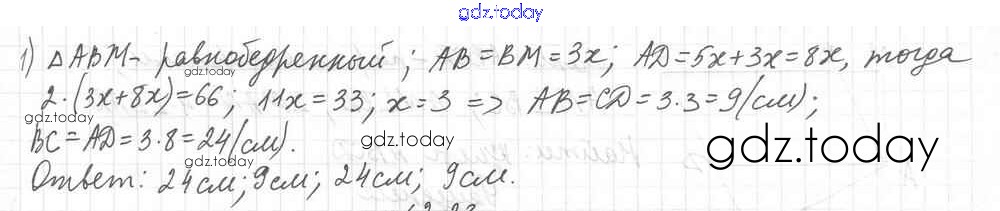 gdz.today
1) △ABM - равнобедренный; AB = BM = 3x; AD = 5x + 3x = 8x, тогда
gdz.today
gdz.today
2·(3x+8x)=66; 11x=33; x=3 => AB=CD=3·3=9(см);
gdz.today
BC=AD=3·8=24(см).
gdz.today
gdz.today
gdz.today
Ответ: 24см; 9см; 24см; 9см.